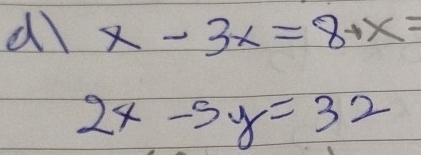 d\ x - 3x = 8+x=
2x - 5y = 32